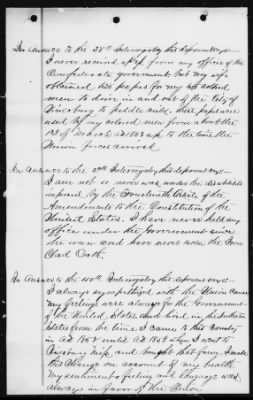 In Answer to the 38th Interrogatory this deponent says:-
I never received a pass from any officer of the
Confederate government but my wife
obtained two passes for my old colored
men to drive in and out of the City of
Vicksburg to peddle milk, these passes were
used by my colored men from about the
1st of March AD 1863 up to the time the
Union forces arrived
In Answer to the 39th Interrogatory this deponent says:-
I am not or never was under the disabilities
imposed by the Fourteenth Article of the
Amendments to the Constitution of the
United States. I have never held any
office under the Government since
the war and have never taken the Iron
Clad Oath.
In Answer to the 40th Interrogatory this deponent says:-
I always sympathized with the Union Cause
my feelings were always for the Government
of the United States and lived in the Northern
States from the time I came to this Country
in AD
until AD
when I went to
Vicksburg Miss. and bought that farm I made
this change on account of my health
my sentiments feeling and language was
always in favor of the Union